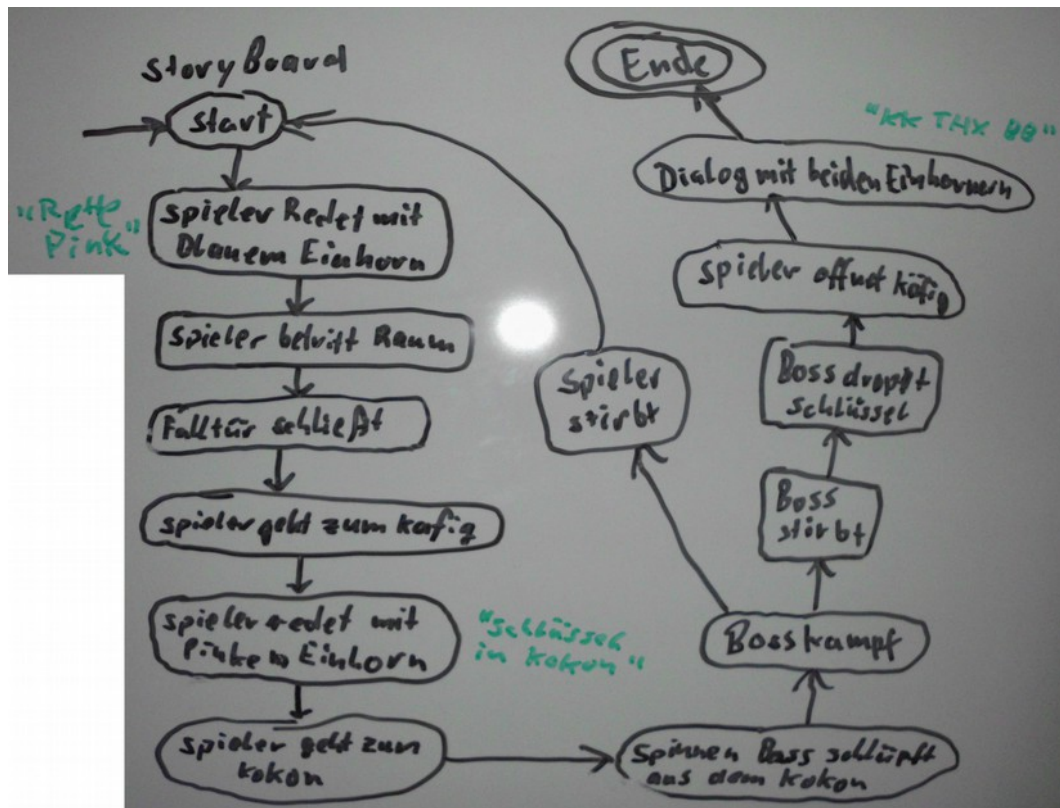 StoryBoard
start
"Rette
Pink"
spieler Redet mit
Blauem Einhorn
spieler betritt Raum
Falltür schließt
spieler geht zum käfig
spieler redet mit
Pinkem Einhorn
"Schlüssel
in Kokon"
spieler geht zum
kokon
Spinnen Boss schlüpft
aus dem Kokon
Bosskampf
Spieler
stirbt
Boss
stirbt
Boss droppt
schlüssel
spieler öffnet käfig
Dialog mit beiden Einhörnern
"KK THX
Ende